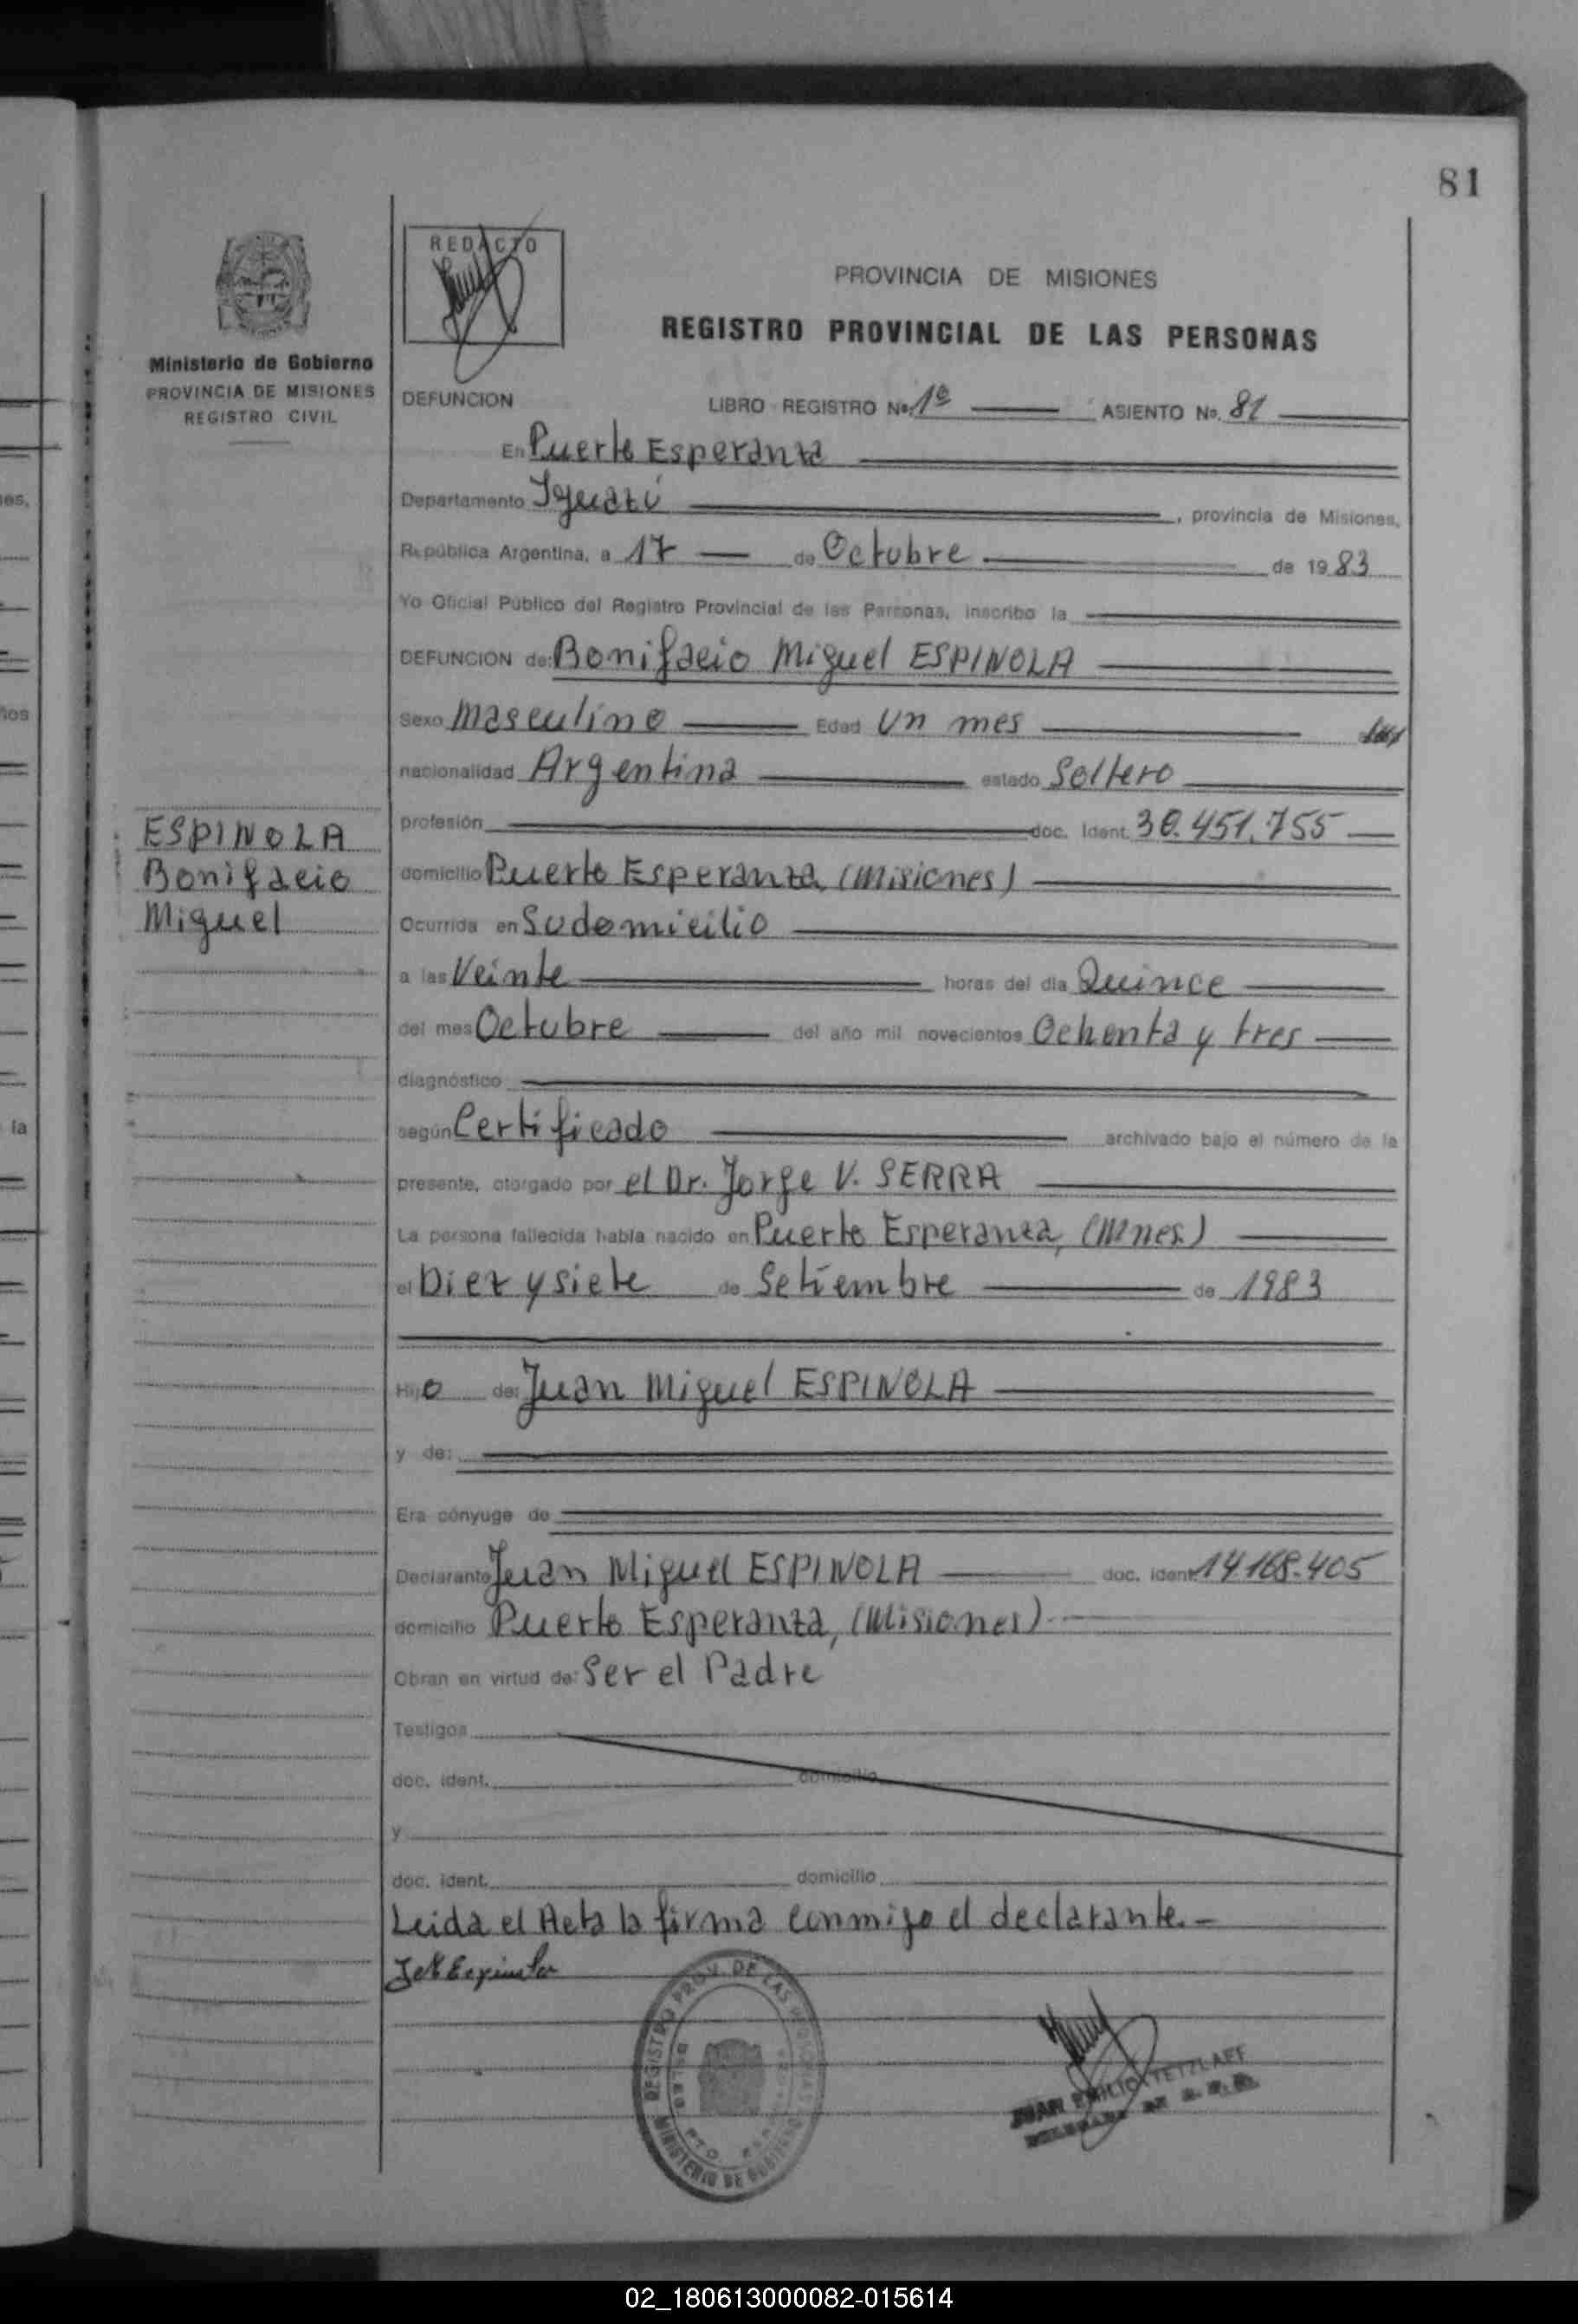 81
REDACTO
PROVINCIA DE MISIONES
REGISTRO PROVINCIAL DE LAS PERSONAS
Ministerio de Gobierno
PROVINCIA DE MISIONES
REGISTRO CIVIL
DEFUNCION LIBRO REGISTRO No. 1º ASIENTO No. 81
En Puerto Esperanza
Departamento Iguazú, provincia de Misiones,
República Argentina, a 17 de Octubre de 1983
Yo Oficial Público del Registro Provincial de las Personas, inscribo la
DEFUNCION de: Bonifacio Miguel ESPINOLA
Sexo Masculino Edad Un mes
nacionalidad Argentina estado Soltero
profesión doc. Ident. 30.451.755
domicilio Puerto Esperanza, (Misiones)
Ocurrida en Su domicilio
a las Veinte horas del día Quince
del mes Octubre del año mil novecientos Ochenta y tres
diagnóstico
según Certificado archivado bajo el número de la
presente, otorgado por el Dr. Jorge V. SERRA
La persona fallecida había nacido en Puerto Esperanza, (Mnes.)
el Diez y siete de Setiembre de 1983
Hijo de: Juan Miguel ESPINOLA
y de:
Era cónyuge de
Declarante Juan Miguel ESPINOLA doc. ident. 14.168.405
domicilio Puerto Esperanza, (Misiones)
Obran en virtud de: Ser el Padre
Testigos
doc. ident. domicilio
y
doc. ident. domicilio
Leida el Acta la firma conmigo el declarante.-
ESPINOLA
Bonifacio
Miguel
REGISTRO PROV. DE LAS PERSONAS
MINISTERIO DE GOBIERNO
JUAN EMILIO TETZLAFF
es,
ños
la
02_180613000082-015614